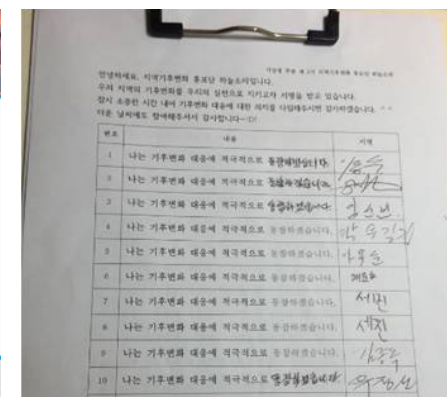 안녕하세요. 지역기후변화 홍보단 하늘소리입니다.
우리 지역의 기후변화를 우리의 실천으로 지키고자 서명을 받고 있습니다.
잠시 소중한 시간 내어 기후변화 대응에 대한 의지를 다짐해주시면 감사하겠습니다. ^^
더운 날씨에도 참여해주셔서 감사합니다~!D!
번호 내용 서명
1 나는 기후변화 대응에 적극적으로 동참하겠습니다.
2 나는 기후변화 대응에 적극적으로 동참하겠습니다.
3 나는 기후변화 대응에 적극적으로 동참하겠습니다.
4 나는 기후변화 대응에 적극적으로 동참하겠습니다.
5 나는 기후변화 대응에 적극적으로 동참하겠습니다.
6 나는 기후변화 대응에 적극적으로 동참하겠습니다.
7 나는 기후변화 대응에 적극적으로 동참하겠습니다. 세빈
8 나는 기후변화 대응에 적극적으로 동참하겠습니다. 세진
9 나는 기후변화 대응에 적극적으로 동참하겠습니다.
10 나는 기후변화 대응에 적극적으로 동참하겠습니다.